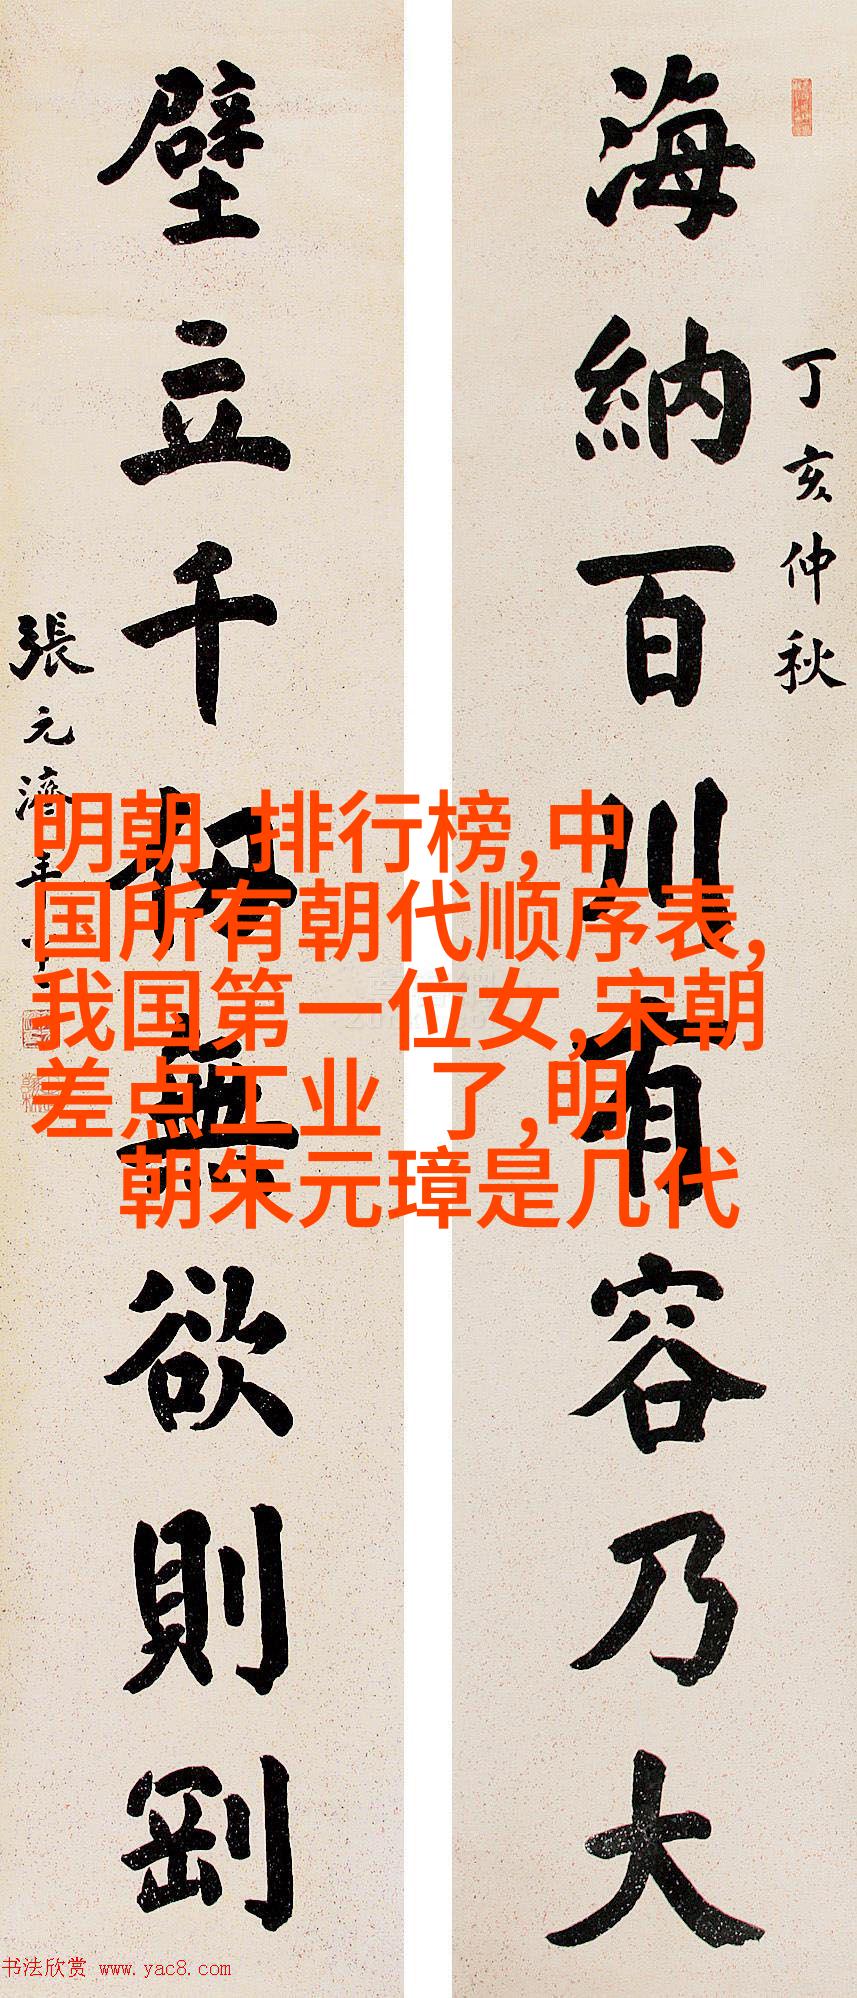 丁亥仲秋
海納百川有容乃大
壁立千 無欲則剛
張元濟年
明朝 排行榜,中
国所有朝代顺序表,
我国第一位女,宋朝
差点工业 了,明
朝朱元璋是几代
书法欣赏 www.yac8.com